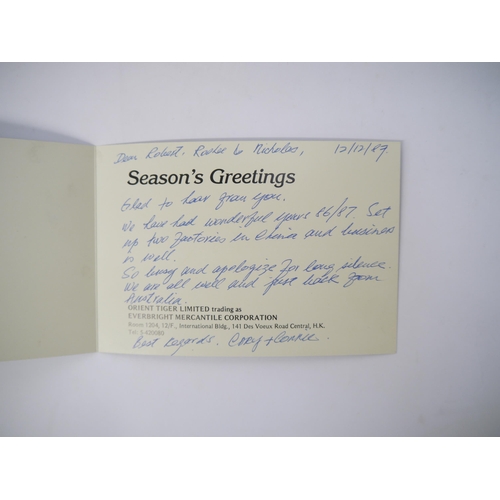 Dear Robert. Rooke & Nicholas, 12/12/89.
Season's Greetings
Glad to hear from you.
We have had wonderful years 86/87. Set
up two factories in China and business
is well.
So busy and apologize for long silence.
We are all well and just back from
Australia.
ORIENT TIGER LIMITED trading as
EVERBRIGHT MERCANTILE CORPORATION
Room 1304, 12/F., International Bldg., 141 Des Voeux Road Central, H.K.
Tel: 5-420080
Best Regards.